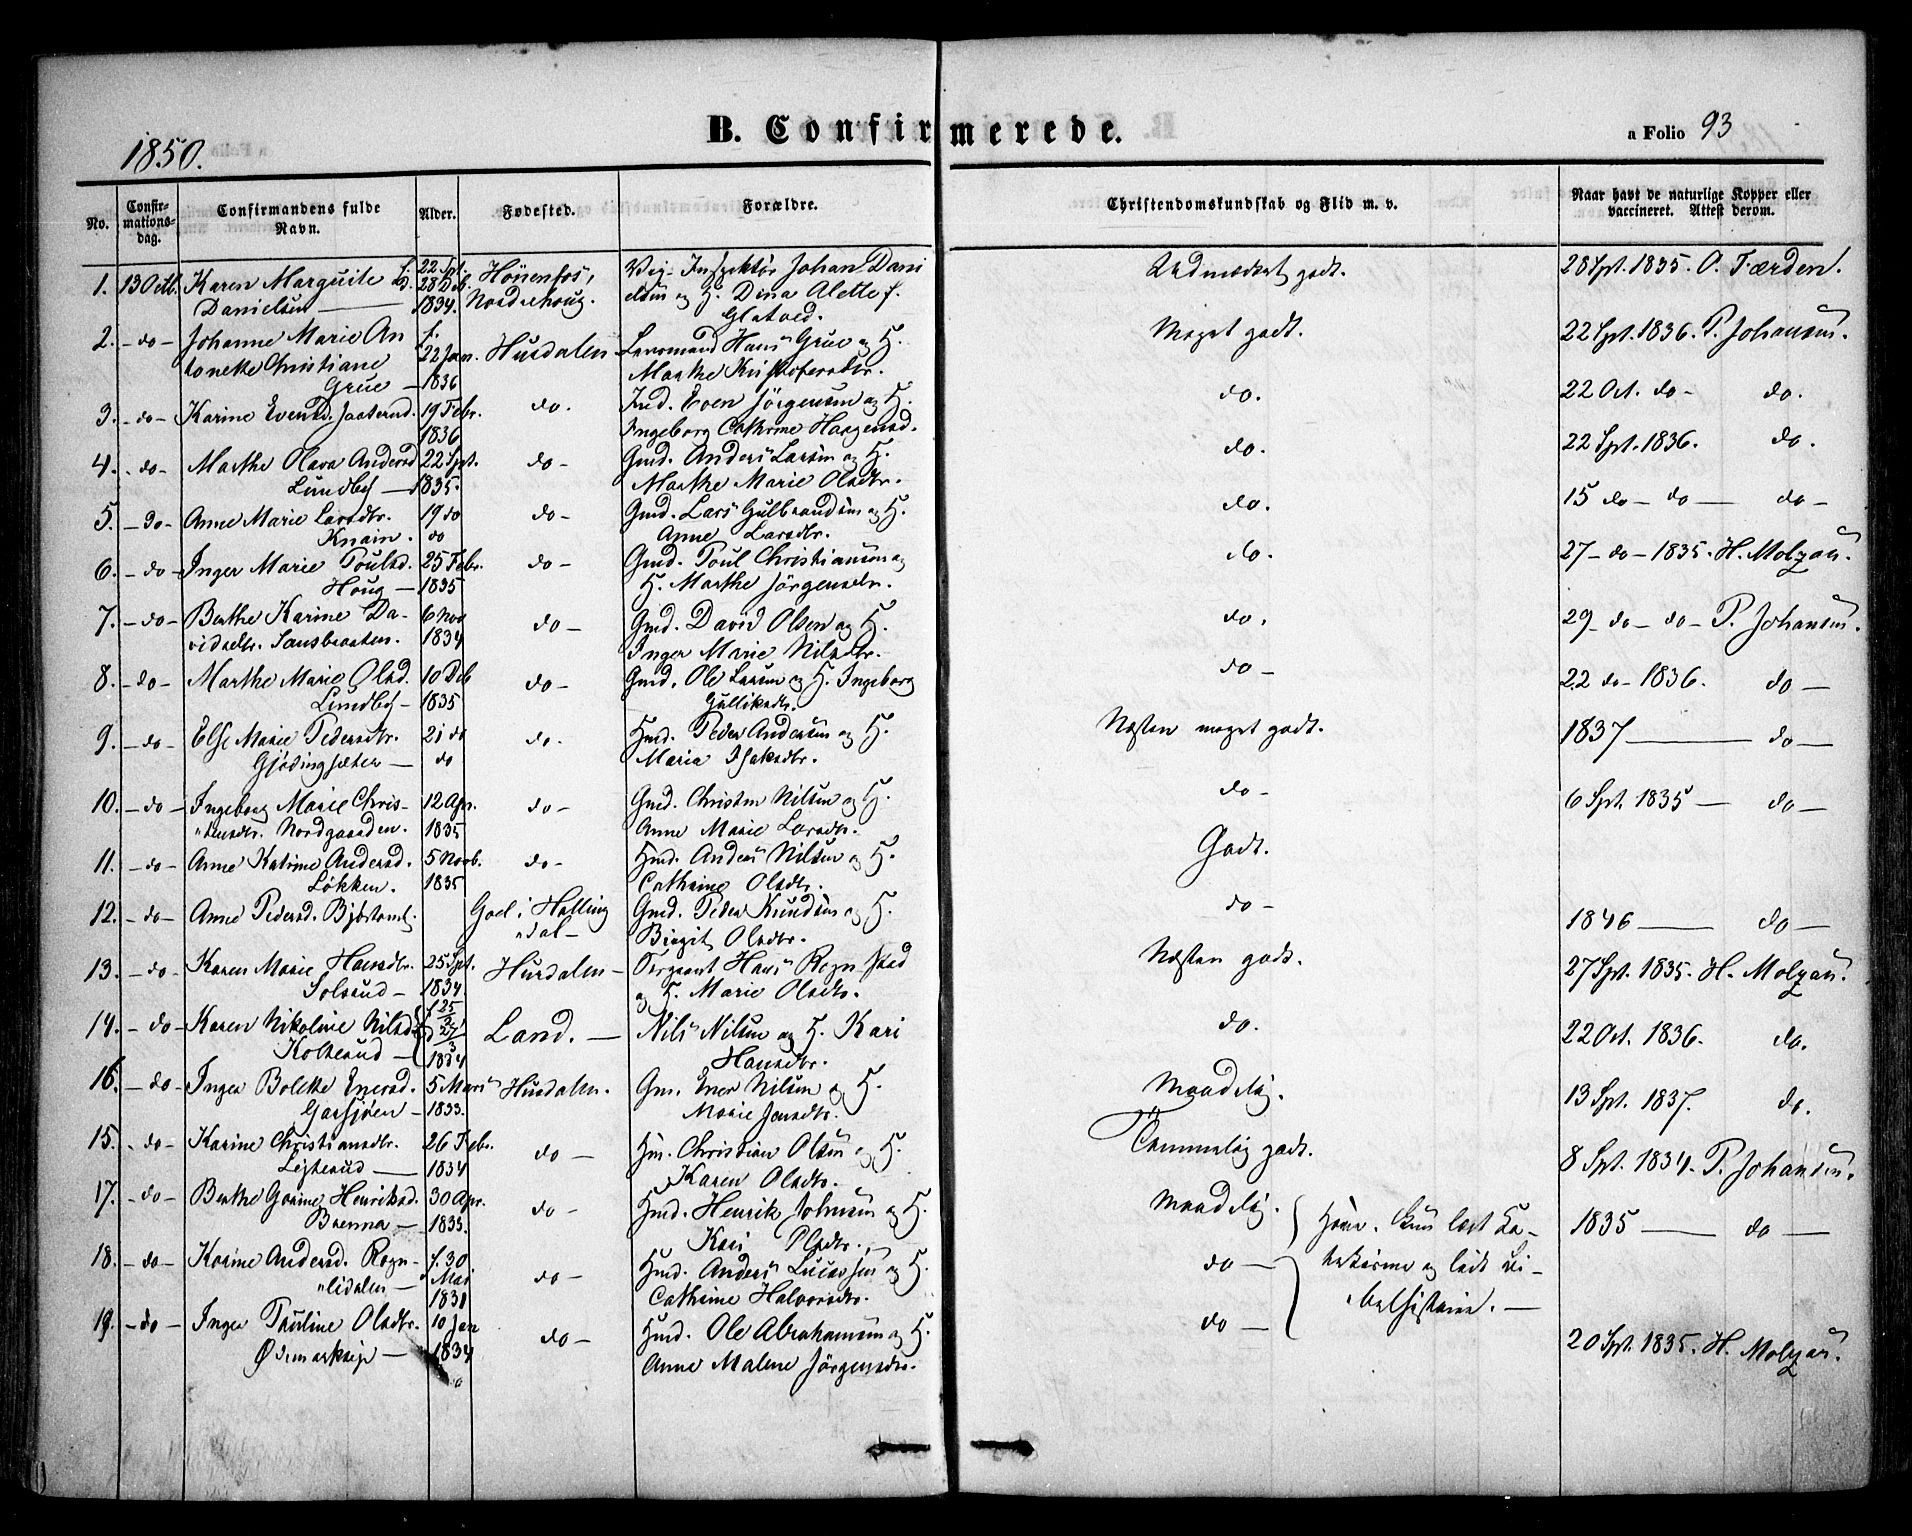 1850.
B. Confirmerede.
a Folio 93
No.
Confir-
mations-
dag.
Confirmandens fulde
Navn.
Alder.
Fødested.
Forældre.
Christendomskundskab og Flid m. v.
Naar havt de naturlige Kopper eller
vaccineret. Attest derom.
1. 13 Octb. Karen Marguite f. 22 Spt. Hönenfos, Vei-Inspektör Johan Dani
D. 28 Deb.
Danielsen — 1834. Norderhoug. elsen og H. Dina Alette f.
Glatved.
Udmærket godt. 28 Spt. 1835. O. Færden.
2. — do — Johanne Marie An f. 22 Jan. Hurdalen Lensmand Hans Grue og H.
tonette Christiane
Grue — 1836 Marthe Kristofersdtr.
Meget godt. 22 Spt. 1836. P. Johansen.
3. — do — Karine Evensd. 19 Febr. do. Ind. Even Jörgensen og H.
1836 Ingeborg Cathrine Haagensd.
do. 22 Oct. do — do.
4. — do — Marthe Olava Andersd 22 Spt. do — Gmd. Anders Larsen og H.
Lundby — 1835. Marthe Marie Olsdtr.
do. 22 Spt. 1836. do.
5. — do — Anne Marie Larsdtr. 19 do do — Gmd. Lars Gulbrandsen og H.
Knain. do Anne Larsdtr.
do. 15 do — do — do —
6. — do — Inger Marie Poulsd. 25 Febr. do — Gmd. Poul Christiansen og
Houg — 1835 H. Marthe Jörgensdtr.
do. 27 — do — 1835. H. Molzau.
7. — do — Berthe Karine Da- 6 Nov do — Gmd. David Olsen og H.
vidsdtr. Sansbraaten. 1834 Inger Marie Nilsdtr.
do. 29 — do — do — P. Johansen.
8. — do — Marthe Marie Olsd. 10 Deb do — Gmd. Ole Larsen og H. Ingeborg
Lundby — 1835 Gulliksdtr.
do — 22 do — 1836. do —
9. — do — Else Marie Pedersdtr. 21 do do. Hmd. Peder Andersen og H.
Gjödingsæter — do Maria Isaksdtr.
Næsten meget godt. 1837 — do —
10. — do — Ingeborg Marie Chris- 12 Apr. do — Gmd. Christen Nilsen og H.
tensdtr. Nordgaarden. 1835 Anne Marie Larsdtr.
do — 6 Spt. 1835 — do —
11. — do — Anne Katrine Andersd. 5 Novb. do — Hmd. Anders Nilsen og H.
Løkken. 1835 Cathrine Olsdtr.
Godt.
12. — do — Anne Pedersd. Goel i Halling Gmd. Peder Knudsen og H.
dal — Birgit Olsdtr.
do — 1846 — do —
13. — do — Karen Marie Hansdtr. 25 Spt. Hurdalen — Sergeant Hans Rognstad
Solerud — 1834. og H. Marie Olsdtr.
Næsten godt. 27 Spt. 1835. H. Molzau.
14. — do — Karen Nikoline Nilsd f 25/2 Land. — Nils Nilsen og H. Kari
d 27/3
Kolterud — 1834 Hansdtr.
do. 22 Oct. 1836. do.
16. — do — Inger Bolette Enersd. 5 Mars Hurdalen. Gm. Ener Nilsen og H.
Garsjöen — 1833. Marie Jensdtr.
Maadelig. 13 Spt. 1837. do.
15. — do — Karine Christiansdtr. 26 Febr. do — Hm. Christian Olsen og H.
— 1834 Karen Olsdtr.
Temmelig godt. 8 Spt. 1834. P. Johansen.
17. — do — Berthe Gorine Henriksd. 30 Apr. do — Hmd. Henrik Johnsen og H.
Brenna — 1833. Kari Olsdtr.
Maadelig. 1835 — do —
18. — do — Karine Andersd. Rogn- f. 30 do — Hmd. Anders Lucassen og H.
lidalen — Mai 1831 Cathrine Halvorsdtr.
do — Have kun læst Ka-
tekisme og lidt Bi-
belhistorie. —
19. — do — Inger Pauline Olsdtr. 10 Jan do — Hmd. Ole Abrahamsen og H.
Ødemarkseje — 1834 Anne Malene Jörgensdtr.
do — 20 Spt. 1835. H. Molzau.